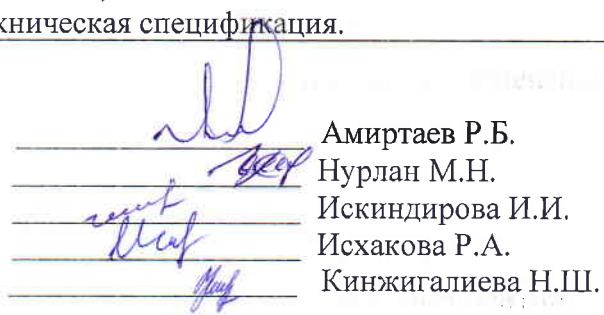 хническая спецификация.
Амиртаев Р.Б.
Нурлан М.Н.
Искиндирова И.И.
Исхакова Р.А.
Кинжигалиева Н.Ш.